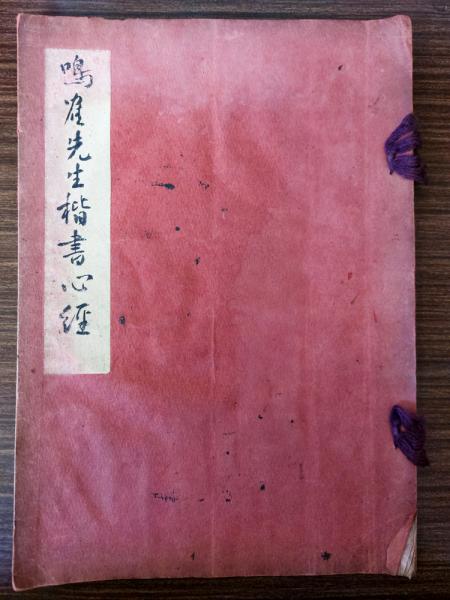 鳴雀先生楷書心經